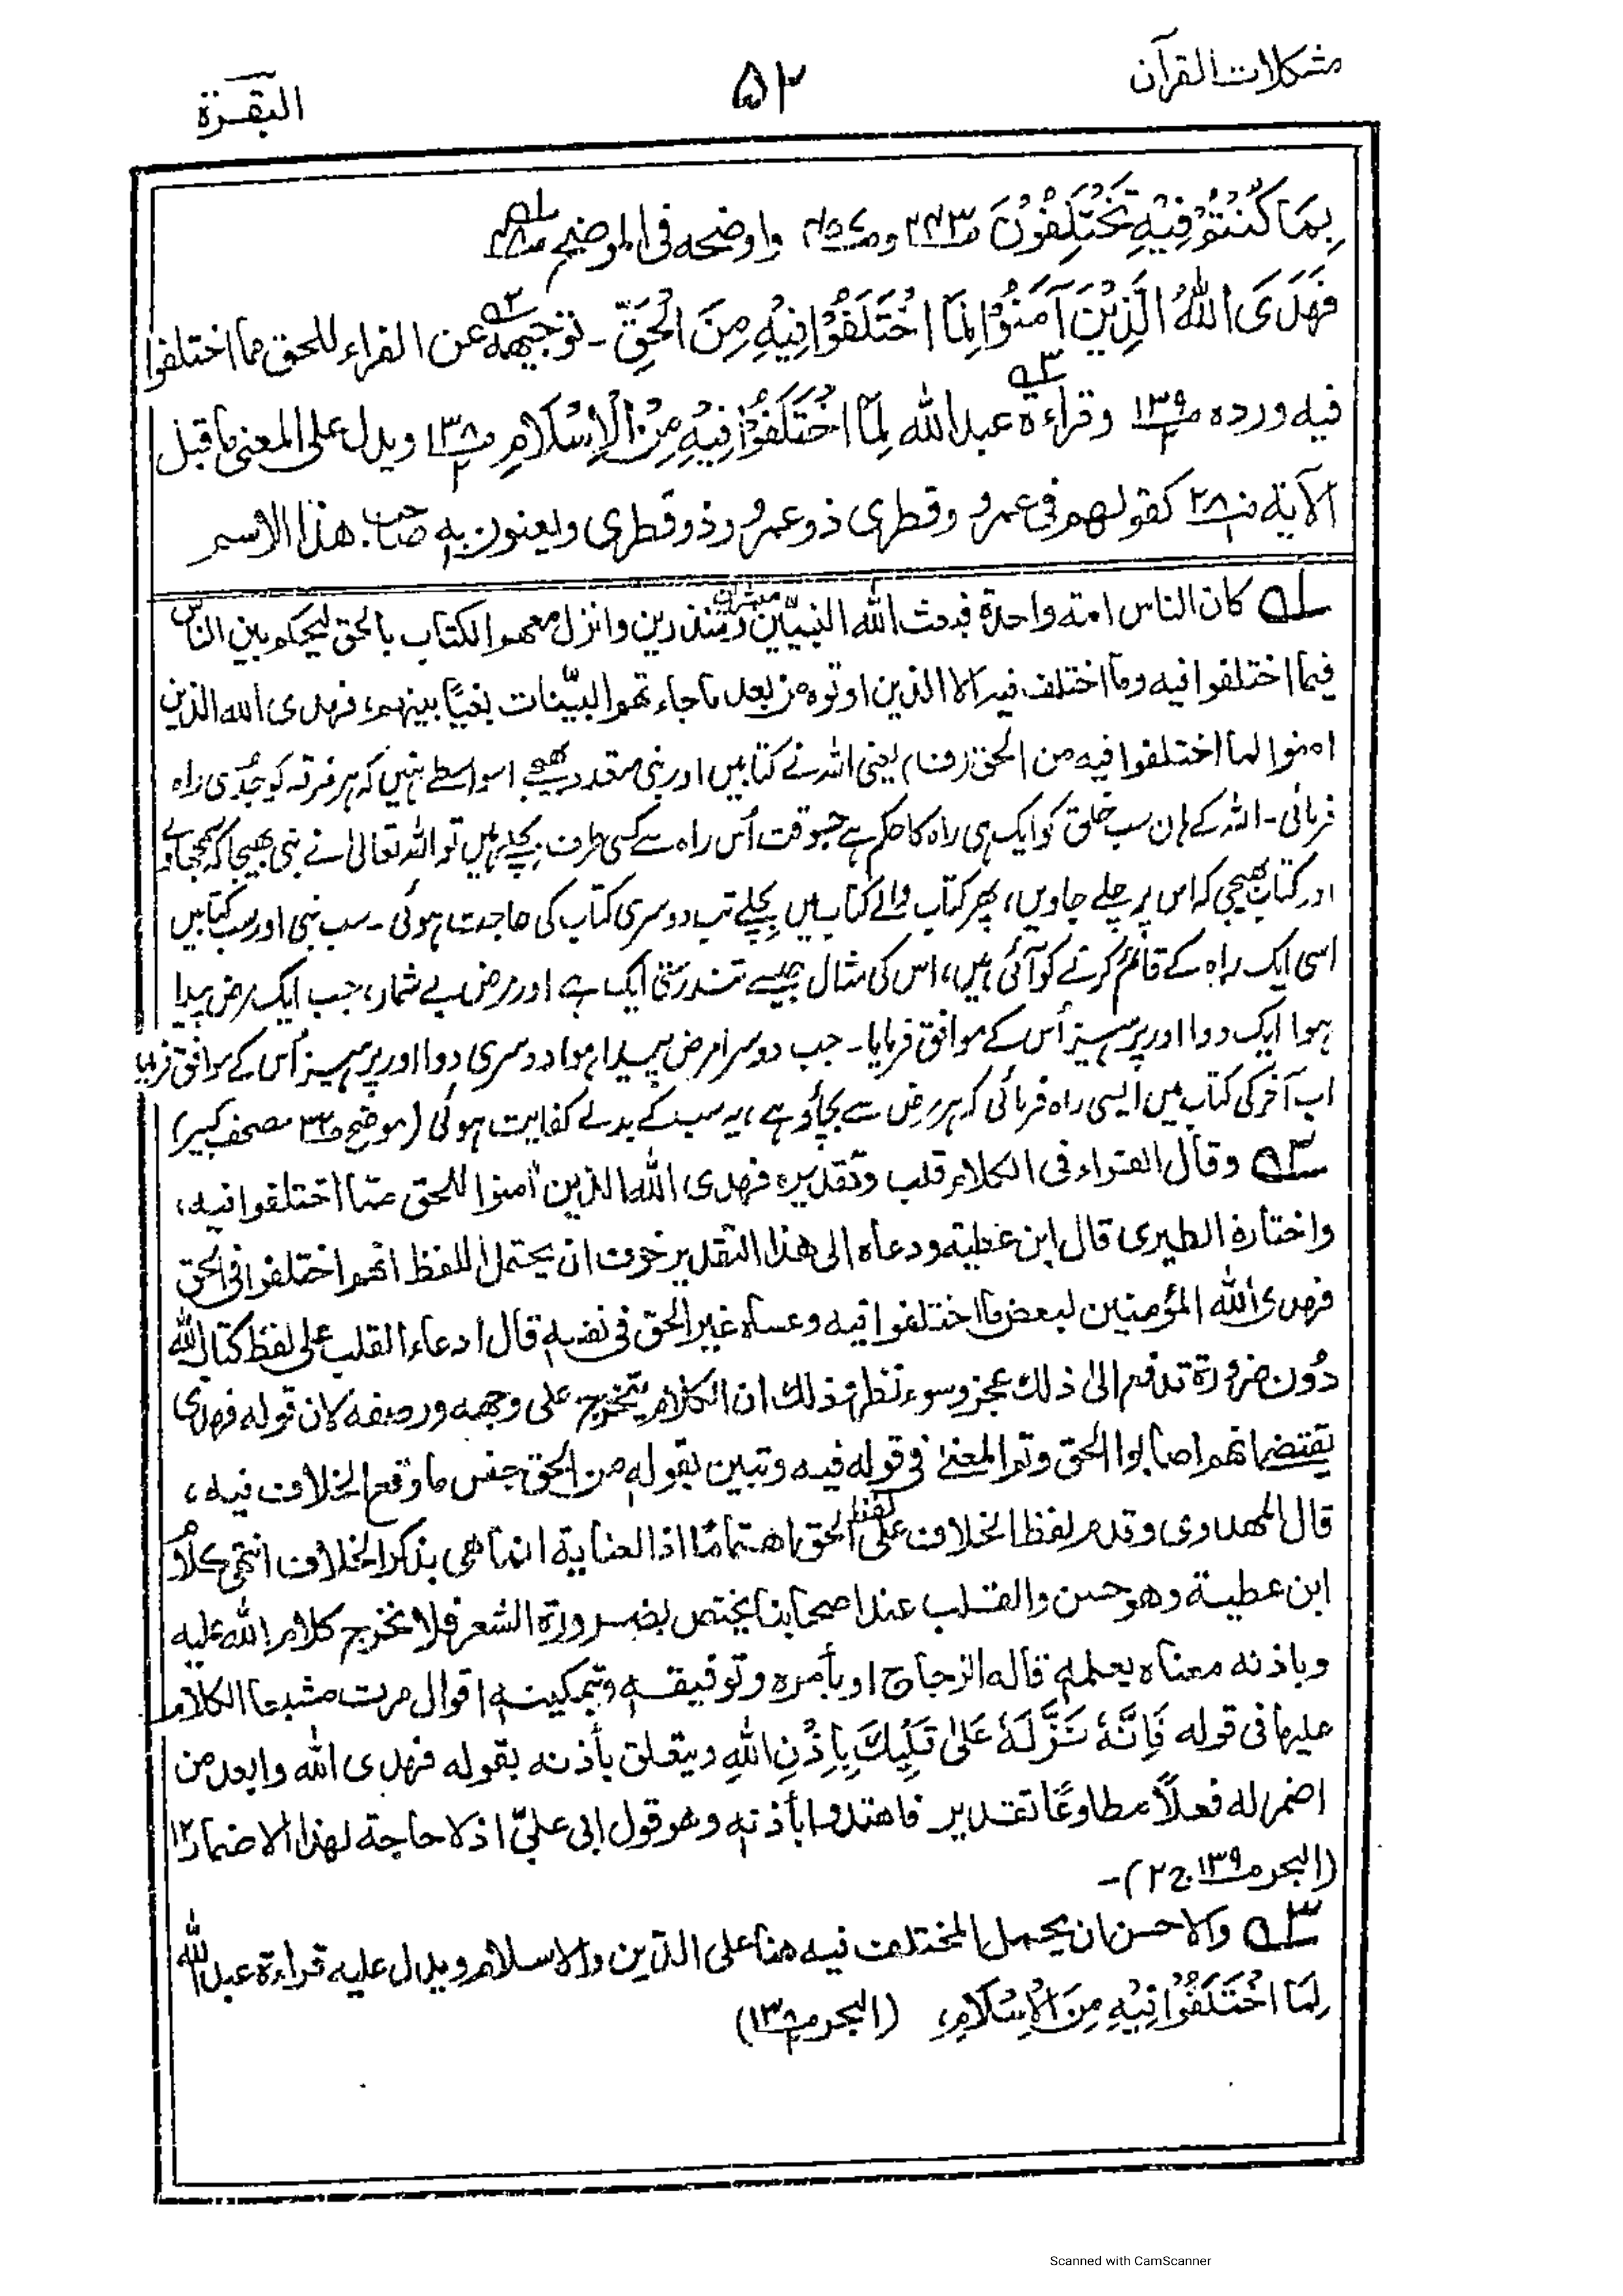 مشکلات القرآن
۵۲
البقـرة
بِمَا كُنْتُمْ فِيْهِ تَخْتَلِفُوْنَ واوضحه فی الموضح
فَهَدَى اللّٰهُ الَّذِيْنَ آمَنُوْا لِمَا اخْتَلَفُوْا فِيْهِ مِنَ الْحَقِّ ۔ توجیهه عن الفراء للحق مما اختلفوا
فیه ورده ص۱۳۹/۲ وقراءة عبدالله لِمَا اخْتَلَفُوْا فِيْهِ مِنَ الْاِسْلَامِ ص۱۳۸/۲ ویدل علی المعنی ما قبل
الآیة کقولهم فی عمرو وقطری ذو عمرو وذو قطری ویعنون به صاحب هذا الاسم
۱ كان الناس امة واحدة فبعث الله النبيّين مبشرين ومنذرين وانزل معهم الكتاب بالحق ليحكم بين الناس
فيما اختلفوا فيه وما اختلف فيه الا الذين اوتوه من بعد ما جاءتهم البيّنات بغيًا بينهم، فهدى الله الذين
امنوا لما اختلفوا فيه من الحق (ف) یعنی اللہ نے کتابیں اور نبی متعدد بھیجے اسواسطے نہیں کہ ہر فرقہ کو جُدی راہ
فرمائی۔ اللہ کے ہاں سب خلق کو ایک ہی راہ کا حکم ہے جسوقت اُس راہ سے کسی طرف بچلے ہیں تو اللہ تعالیٰ نے نبی بھیجا کہ سمجھاوے
اور کتاب بھیجی کہ اس پر چلے جاویں، پھر کتاب والے کتاب میں بچلے تب دوسری کتاب کی حاجت ہوئی۔ سب نبی اور سب کتابیں
اسی ایک راہ کے قائم کرنے کو آئی ہیں، اس کی مثال جیسے تندرستی ایک ہے اور مرض بے شمار، جب ایک مرض پیدا
ہوا ایک دوا اور پرہیز اُس کے موافق فرمایا۔ جب دوسرا مرض پیدا ہوا دوسری دوا اور پرہیز اُس کے موافق فرمایا
اب آخر کی کتاب میں ایسی راہ فرمائی کہ ہر مرض سے بچاؤ ہے، یہ سب کے بدلے کفایت ہوئی (موضح ص۳۲ مصحف کبیر)
۲ وقال الفراء فى الكلام قلب وتقديره فهدى الله الذين اٰمنوا للحق مما اختلفوا فيه،
واختاره الطبرى قال ابن عطية ودعاه الى هذا التقدير خوف ان يحتمل اللفظ انهم اختلفوا فى الحق
فهدى الله المؤمنين لبعض ما اختلفوا فيه وعساه غير الحق فى نفسه قال ادعاء القلب على لفظ كتاب الله
دون ضرورة تدفع الى ذلك عجز وسوء نظر وذلك ان الكلام يتخرج على وجهه ورصفه لان قوله فهدى
يقتضى انهم اصابوا الحق وتم المعنى فى قوله فيه وتبين بقوله من الحق جنس ما وقع الخلاف فيه،
قال المهدوى وقدم لفظ الخلاف على لفظ الحق اهتمامًا اذ العناية انما هى بذكر الخلاف انتهى كلام
ابن عطية وهو حسن والقلب عند اصحابنا يختص بضرورة الشعر فلا نخرج كلام الله عليه
وباذنه معناه بعلمه قاله الزجاج او بأمره وتوفيقه وتمكينه اقوال مرت مشبعا الكلام
عليها فى قوله فَاِنَّهٗ نَزَّلَهٗ عَلىٰ قَلْبِكَ بِاِذْنِ اللّٰهِ ويتعلق بأذنه بقوله فهدى الله وابعد من
اضمر له فعلاً مطاوعًا تقديره فاهتدوا بأذنه وهو قول ابى علىّ اذ لا حاجة لهذا الاضمار ۱۲
(البحر ص۱۳۹ ج۲)۔
۳ والاحسن ان يحمل المختلف فيه هنا على الدّين والاسلام ويدل عليه قراءة عبد الله
لِمَا اخْتَلَفُوْا فِيْهِ مِنَ الْاِسْلَامِ، (البحر ص۱۳۸/۲)
Scanned with CamScanner